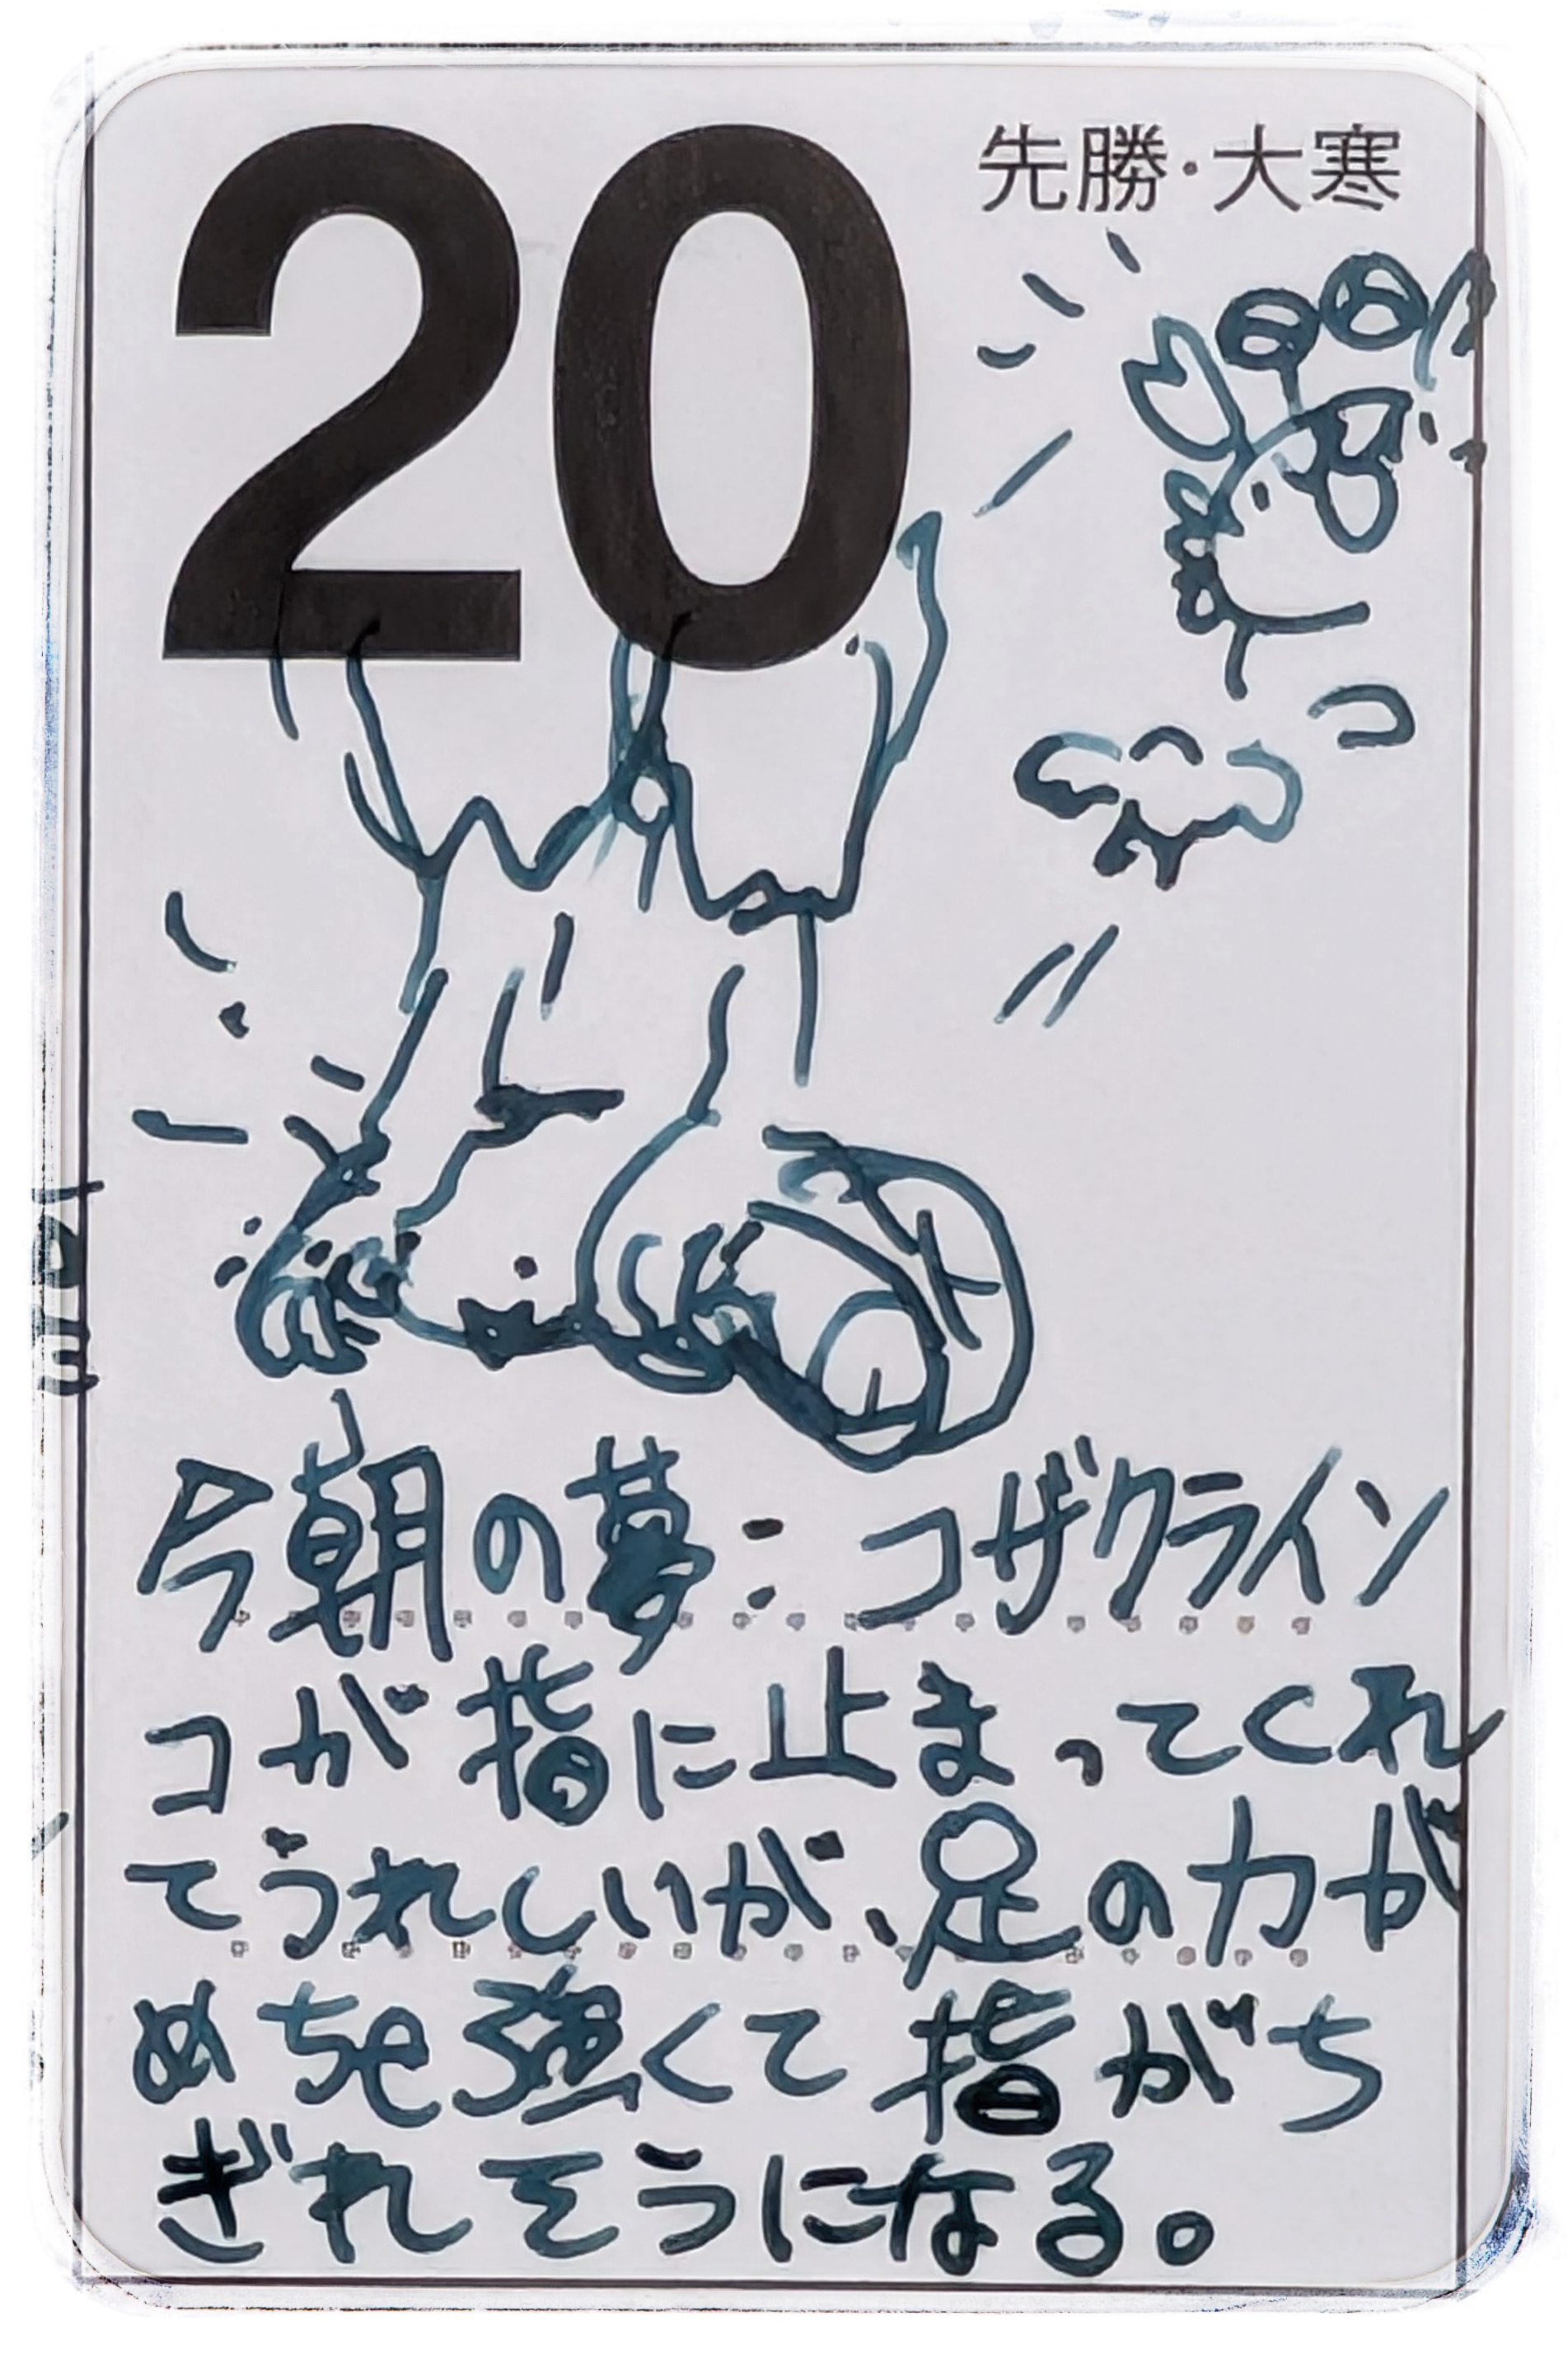 20
先勝・大寒
今朝の夢：コザクライン
コが指に止まってくれ
てうれしいが、足の力が
めちゃ強くて指がち
ぎれそうになる。